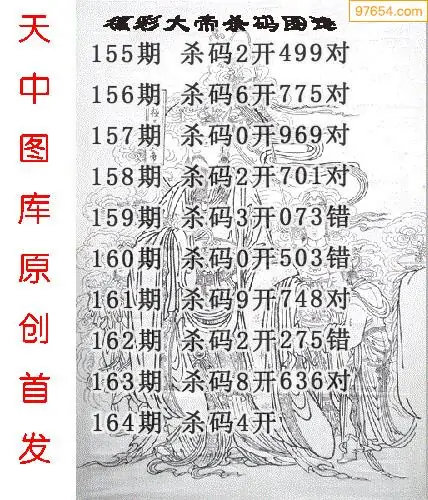 97654.com
福彩大帝杀码图选
155期 杀码2开499对
156期 杀码6开775对
157期 杀码0开969对
158期 杀码2开701对
159期 杀码3开073错
160期 杀码0开503错
161期 杀码9开748对
162期 杀码2开275错
163期 杀码8开636对
164期 杀码4开
天中图库原创首发